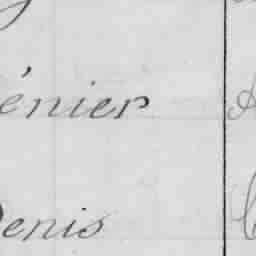 énier
Denis